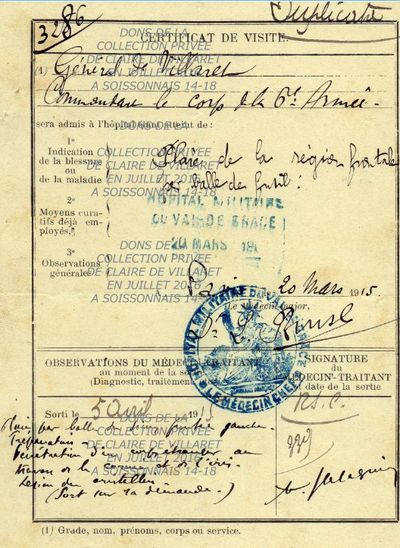 Duplicata
3286
CERTIFICAT DE VISITE.
DONS DE LA
COLLECTION PRIVÉE
DE CLAIRE DE VILLARET
EN JUILLET 2016
A SOISSONNAIS 14-18
(1) Général de Villaret
Commandant le corps de la 6e Armée.
sera admis à l'hôpital
de:
1° Indication de la blessure ou de la maladie
Plaie de la région frontale
par balle de fusil.
2° Moyens curatifs déjà employés.
3° Observations générales
DONS DE LA
COLLECTION PRIVÉE
DE CLAIRE DE VILLARET
EN JUILLET 2016
A SOISSONNAIS 14-18
HÔPITAL MILITAIRE
DU VAL DE GRACE
20 MARS 191
DONS DE LA
COLLECTION PRIVÉE
DE CLAIRE DE VILLARET
EN JUILLET 2016
A SOISSONNAIS 14-18
20 Mars 1915
Le médecin-major,
HÔPITAL MILITAIRE DU VAL DE GRACE
LE MÉDECIN CHEF
OBSERVATIONS DU MÉDECIN TRAITANT
au moment de la sortie
(Diagnostic, traitement
SIGNATURE
du
MÉDECIN-TRAITANT
et date de la sortie
Sorti le 5 avril 1915
DONS DE LA
COLLECTION PRIVÉE
DE CLAIRE DE VILLARET
EN JUILLET 2016
A SOISSONNAIS 14-18
Plaie par balle
Trépanation
(Sort sur sa demande.)
(1) Grade, nom, prénoms, corps ou service.